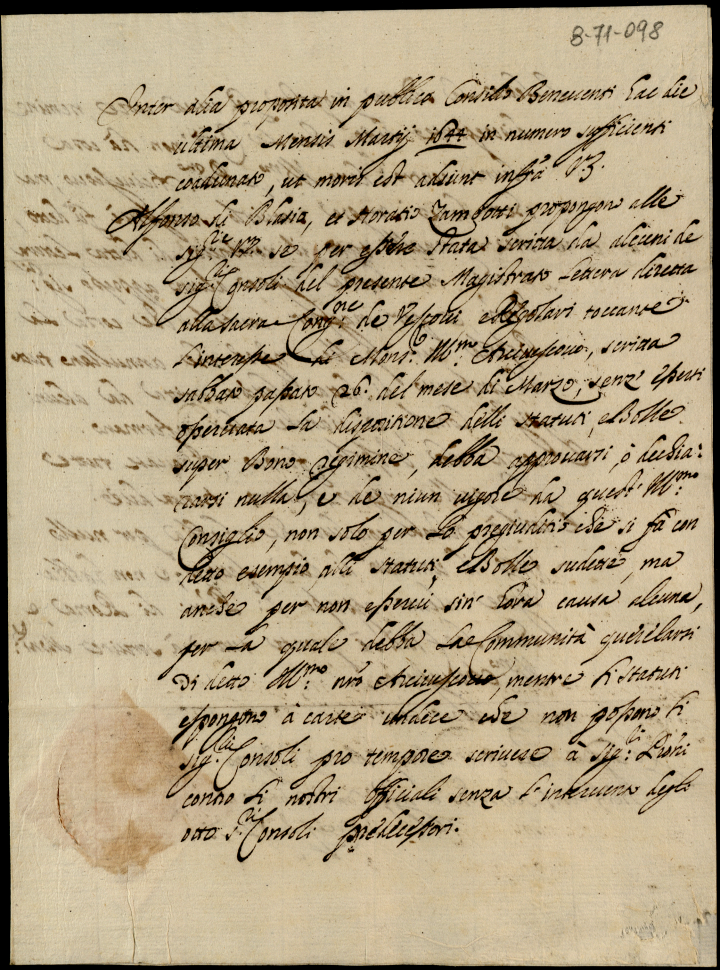 8-71-098
Inter alia proposita in publico Consilio Beneventi hac die
ultima Mensis Martij 1644 in numero sufficienti
coadunato, ut moris est adsunt infra V3.
Alfonso di Blasio, et Horatio Zambotti propongono alle
sig.rie V3. se per essere stata scritta da alcuni de
sig.ri Consoli del presente Magistrato lettera diretta
alla sacra Cong.ne de Vescovi e Regolari toccante
l'interesse di Mons.r Ill.mo Arcivescovo, scritta
sabbato passato 26. del mese di Marzo, senz' essersi
osservata la dispositione delli statuti, e Bolle
super Bono regimine, debba approvarsi, ò dechia:
rarsi nulla, e de niun vigore da quest' Ill.mo
Consiglio, non solo per lo pregiuditio che si fà con
detto esempio alli statuti, e Bolle sudette, ma
anche per non esserci sin' hora causa alcuna,
per la quale debba la Communità querelarsi
di detto Ill.mo n'ro Arcivescovo, mentre li statuti
espongono à carte undece che non possono li
sig.ri Consoli pro tempore scrivere à sig.ri
contro li nostri officiali senza l'intervento degli
otto s.ri Consoli predecessori.